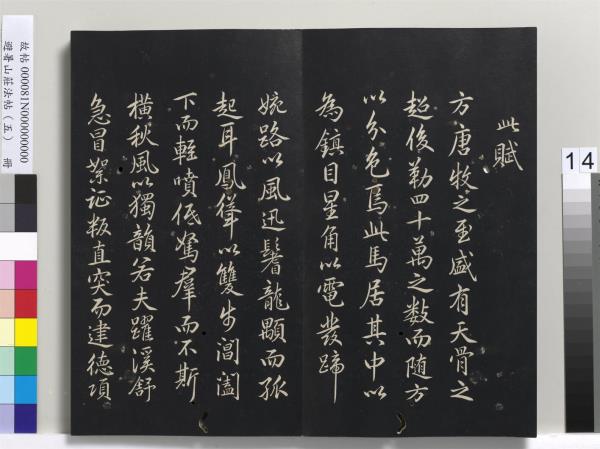 此賦
方唐牧之至盛有天骨之
超俊勒四十萬之數而随方
以分色焉此馬居其中以
為鎮目星角以電發蹄
踠路以風迅鬐龍顒而孤
起耳鳳聳以雙步閶闔
下而輕噴低駑羣而不斯
橫秋風以獨韻若夫躍溪舒
急冒絮证叛直突而建德項
故帖 000081N000000000
避暑山莊法帖（五） 冊
14